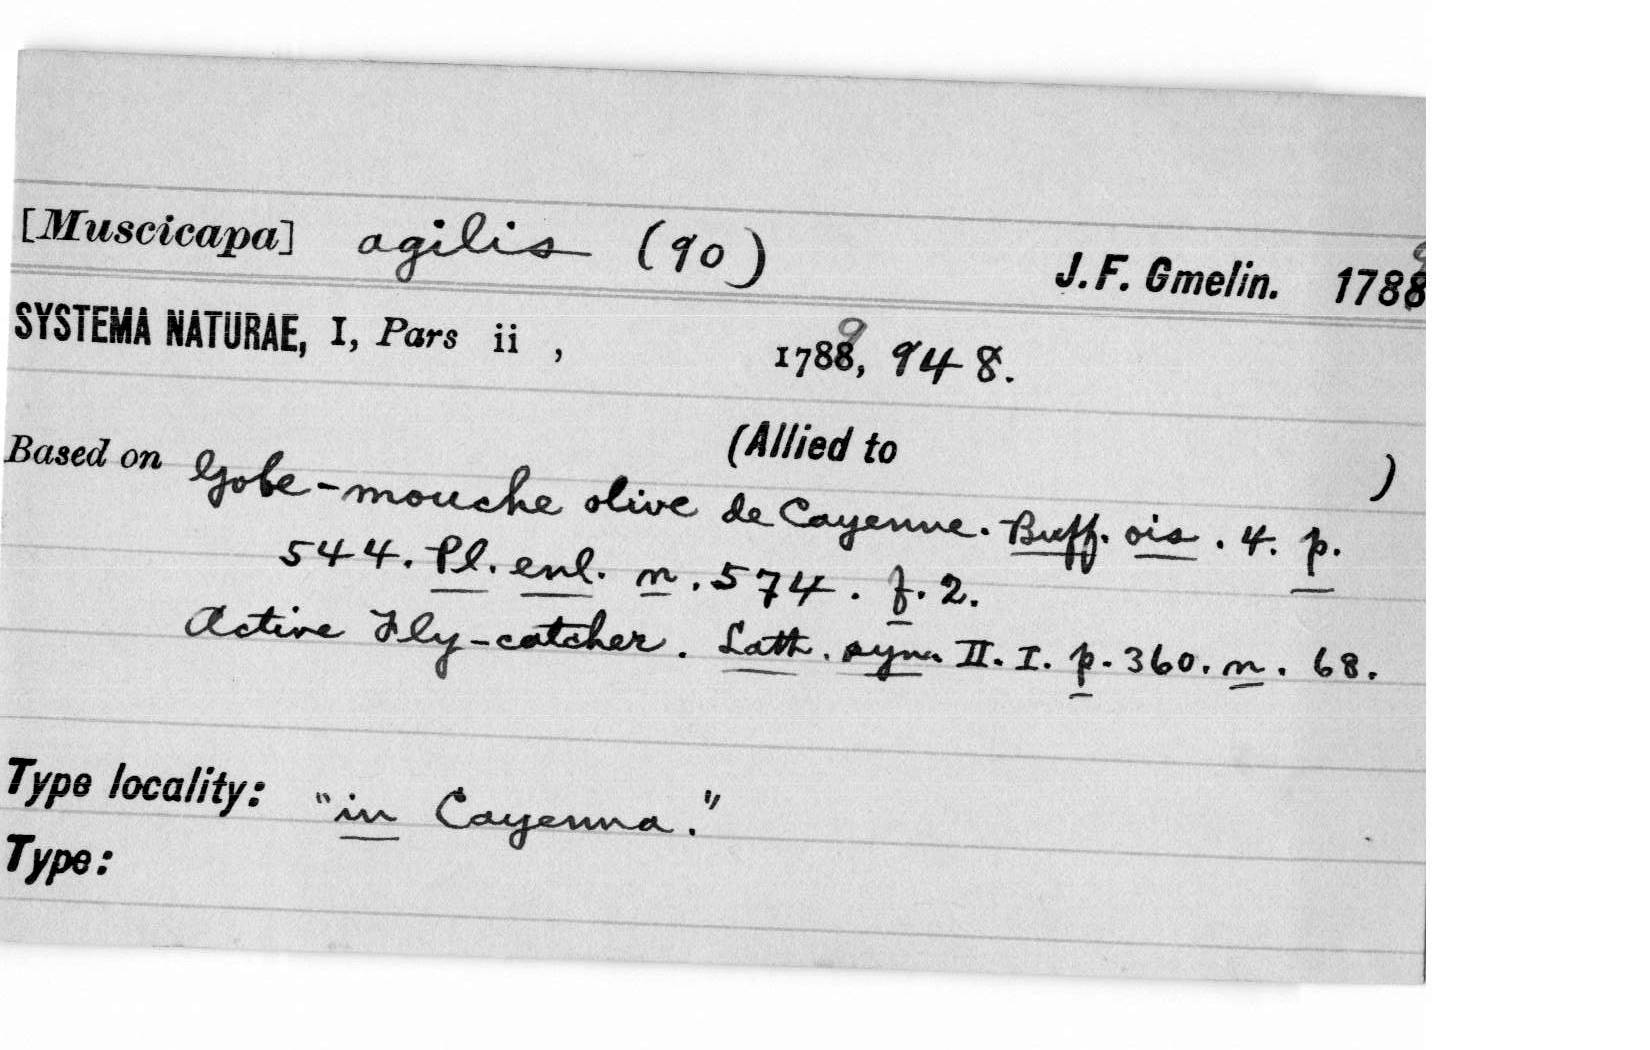 [Muscicapa] agilis (90) J. F. Gmelin. 1788 9
SYSTEMA NATURAE, I, Pars ii , 1788 9, 948.
(Allied to )
Based on Gobe-mouche olive de Cayenne. Buff. ois. 4. p.
544. Pl. enl. n. 574. f. 2.
Active Fly-catcher. Lath. syn. II. I. p. 360. n. 68.
Type locality: "in Cayenna."
Type: